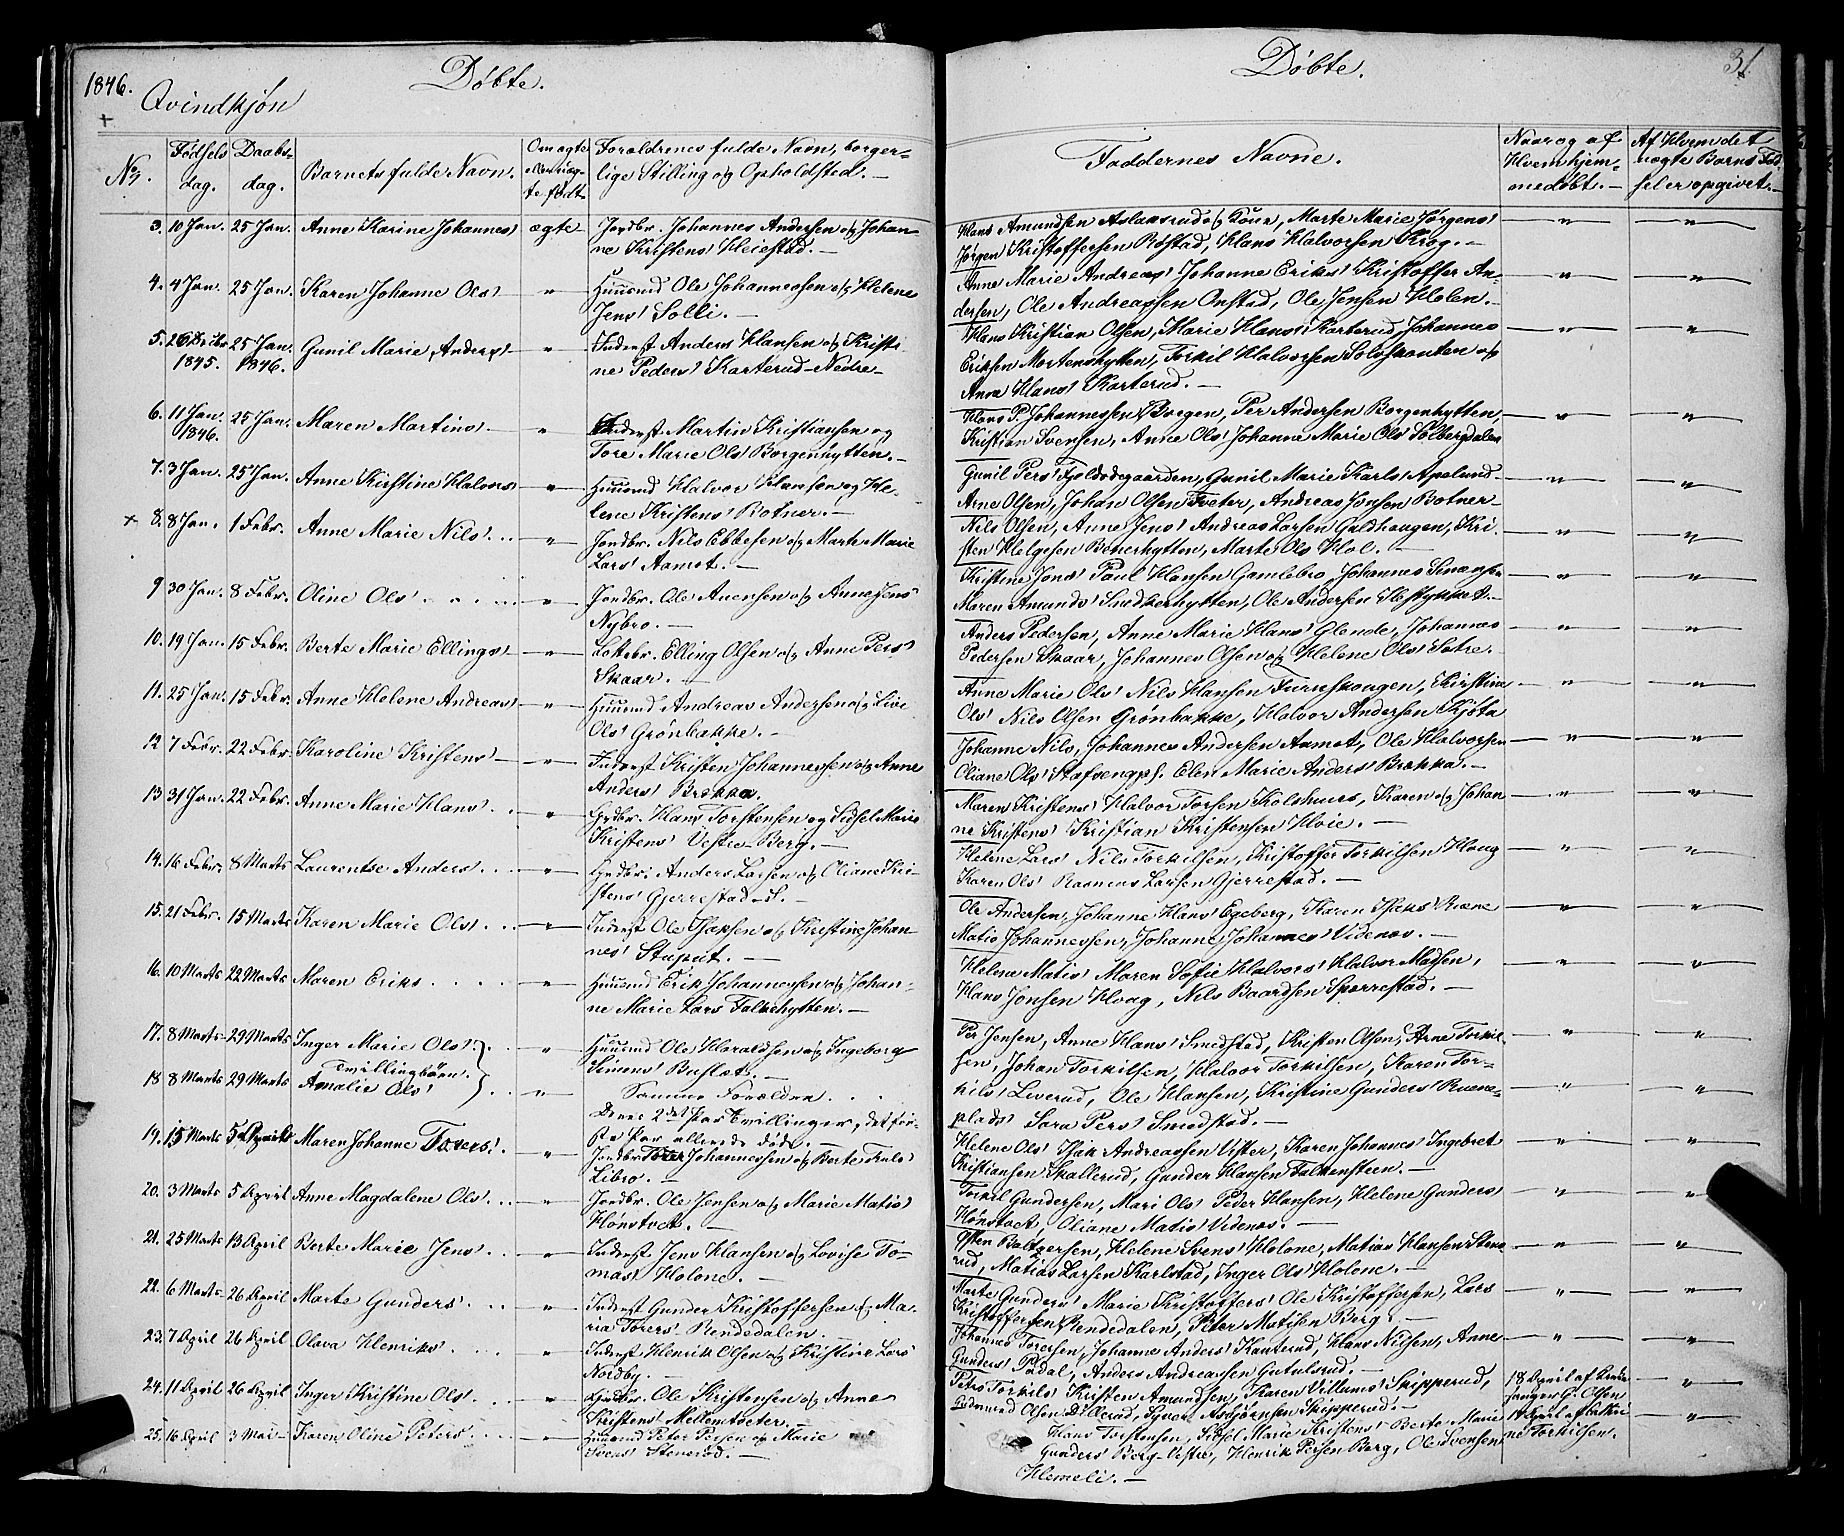 1846.
Døbte.
Qvindkjøn
No.
Fødsels
dag.
Daabs-
dag.
Barnets fulde Navn.
Om ægte
eller uæg-
te født
Forældrenes fulde Navn, borger-
lige Stilling og Opholdsted. —
3. 10 Jan. 25 Jan. Anne Karine Johannes' ægte Jordbr. Johannes Andersen og Johan
ne Kristens' Heiestad. —
4. 4 Jan. 25 Jan. Karen Johanne Ols' — " — Huusmd Ole Johannessen og Helene
Jens' Solli. —
5. 26 Decbr 25 Jan. Gunil Marie Anders' — " — Inderst Anders Hansen og Kristi
1845. 1846. ne Peders' Karterud-Nedre —
6. 11 Jan. 25 Jan. Maren Martins' — " — Inderst Martin Kristiansen og
1846. Tore Marie Ols' Borgenhytten. —
7. 3 Jan. 25 Jan. Anne Kirstine Halvors' — " — Huusmd Halvor Hansen og He-
lene Kristens' Botner. —
+ 8. 8 Jan. 1 Febr. Anne Marie Nils' . . — " — Jordbr. Nils Ebbesen og Marte Marie
Lars' Aamot. —
9 30 Jan. 8 Febr. Oline Ols' . . . . — " — Jordbr. Ole Auensen og Anne Jens'
Nybro. —
10. 19 Jan. 15 Febr. Berte Marie Ellings' — " — Elling Olsen og Anne Pers'
Skaar. —
11. 25 Jan. 15 Febr. Anne Helene Andreas' — " — Huusmd Andreas Andersen og Live
Ols' Grønbakke. —
12 7 Febr. 22 Febr. Karoline Kristens' — " — Inderst Kristen Johannessen og Anne
Anders' Brække.
13 31 Jan. 22 Febr. Anne Marie Hans' . . — " — Grdbr. Hans Torstensen og Sidsel Marie
Kristens' Vestre-Berg. —
14. 16 Febr. 8 Marts Laurentse Anders' . . . — " — Grdbr. Anders Larsen og Oliane Kri-
stens' Gjerrestad-S. —
15. 21 Febr. 15 Marts Karen Marie Ols' . . — " — Inderst Ole Isaksen og Kristine Johan
nes' Stuput. —
16. 10 Marts 22 Marts Maren Eriks . . . . — " — Huusmd Erik Johannessen og Johan-
ne Marie Lars' Falkehytten. —
17. 8 Marts 29 Marts Inger Marie Ols' . . " Huusmd Ole Haraldsen og Ingeborg
Tvillingbørn. Simens' Buslet. —
18 8 Marts 29 Marts Amalie Ols' . . — " — Samme Forældre . . .
Deres 2det Par Tvillinger, det før-
ste Par allerede døde. —
19. 15 Marts 5 April Maren Johanne Torers'. — " — Jordbr. Torer Johannessen og Berte Truls'
Libro. —
20. 3 Marts 5 April Anne Magdalene Ols' . . — " — Jordbr. Ole Jensen og Marie Matis'
Hønstvet. —
21. 25 Marts 13 April Berte Marie Jens' . . — " — Inderst Jens Hansen og Lovise To-
mas' Holone. —
22. 6 Marts 26 April Marte Gunders' . . . — " — Inderst Gunder Kristoffersen og Ma-
ria Torers' Rendedalen. —
23. 7 April 26 April Olava Henriks' . . . — " — Inderst Henrik Olsen og Kristine Lars'
Nordby. —
24. 11 April 26 April Inger Kristine Ols' . . — " — Grdbr. Ole Kristensen og Anne
Kristens' Mellemtveter. —
25. 16 April 3 Mai Karen Oline Peters' . . — " — Huusmd Peter Persen og Marie
Svens' Stenerød. —
Døbte.
31.
Faddernes Navne.
Naar og af
Hvem hjem-
medøbt. —
Af Hvem det
uægte Barns Fød-
sel er opgivet. —
Hans Amundsen Aslaksrud og Kone, Marte Marie Jørgens'
Jørgen Kristoffersen Røstad, Hans Halvorsen Krog. —
Anne Marie Andreas' Johanne Eriks' Kristoffer An-
dersen, Ole Andreassen Onstad, Ole Jensen Holen. —
Hans Kristian Olsen, Marie Hans' Karterud, Johannes
Eriksen Mortenshytten, Torkil Halvorsen Solvskouten og
Anne Hans' Karterud. —
Hans P. Johannessen Borgen, Per Andersen Borgenhytten,
Kristian Svensen, Anne Ols' Johanne Marie Ols' Solbergdalen
Gunil Pers' Fjeldodegaarden, Gunil Marie Karls' Apelund
Arne Olsen, Johan Olsen Tveter, Andreas Jonsen Botner —
Nils Olsen, Anne Jens' Andreas Larsen Guldhaugen, Kri-
sten Helgesen Bonerhytten, Marte Ols' Hol. —
Kristine Jons' Poul Hansen Gamlebro, Johannes Simensen
Maren Amunds' Smedkerhytten, Ole Andersen Elvestykket. —
Anders Pedersen, Anne Marie Hans' Glende, Johannes
Pedersen Skaar, Johannes Olsen og Helene Ols' Sætre. —
Anne Marie Ols' Nils Hansen Furuskougen, Kirstine
Ols' Nils Olsen Grønbakke, Halvor Andersen Kjøta
Johanne Nils, Johannes Andersen Aamot, Ole Halvorsen
Oliane Ols' Stafsengps. Elen Marie Anders' Brække. —
Maren Kristens' Halvor Torsen Kolshuus, Karen og Johan
ne Kristens' Kristian Kristensen Hvie. —
Helene Lars' Nils Torkilsen, Kristoffer Torkilsen Haug
Karen Ols' Rasmus Larsen Gjerrestad. —
Ole Andersen, Johanne Hans' Egeberg, Karen Isaks' Ruene
Matis Johannessen, Johanne Johannes' Videnæs. —
Helene Matis' Maren Sofie Halvors' Halvor Madsen,
Hans Jensen Hvag, Nils Baardsen Sparrestad. —
Per Jensen, Anne Hans' Smedstad, Kristen Olsen, Arne Torkil-
sen, Johan Torkilsen, Halvor Torkilsen, Karen Tor-
kils' Liverud, Ole Hansen, Kristine Gunders' Ruene-
plads' Sara Pers' Smedstad. —
Helene Ols' Isak Andreassen Vister, Karen Johannes' Ingebret
Kristiansen Skallerud, Gunder Hansen Falkensteen. —
Torkel Gundersen, Mari Ols' Peder Hansen, Helene Gunders'
Hønstvet, Oliane Matis' Videnæs. —
Østen Baltzersen, Helene Svens' Holone, Matias Hansen Stene
rud, Matias Larsen Karlstad, Inger Ols' Holone. —
Marte Gunders' Marie Kristoffers' Ole Kristoffersen, Lars
Kristoffersen Rendedalen, Peter Matisen Berg. —
Johannes Torersen, Johanne Anders' Kauterud, Hans Nilsen, Anne
Gunders' Pødal, Anders Andreassen Gutulsrud. —
Petro Torkils' Kristen Amundsen, Karen Villums' Skipperud,
Gudmund Olsen Dillerud, Syver Asbjørnsen Skipperud. —
18 April af Kirke
sanger G. Olsen
Hans Torstensen, Sidsel Marie Kristens' Berte Marie
Gunders' Berg-Vestre, Henrik Persen Berg, Ole Svensen
Hemeli. —
ne Torkilsen.